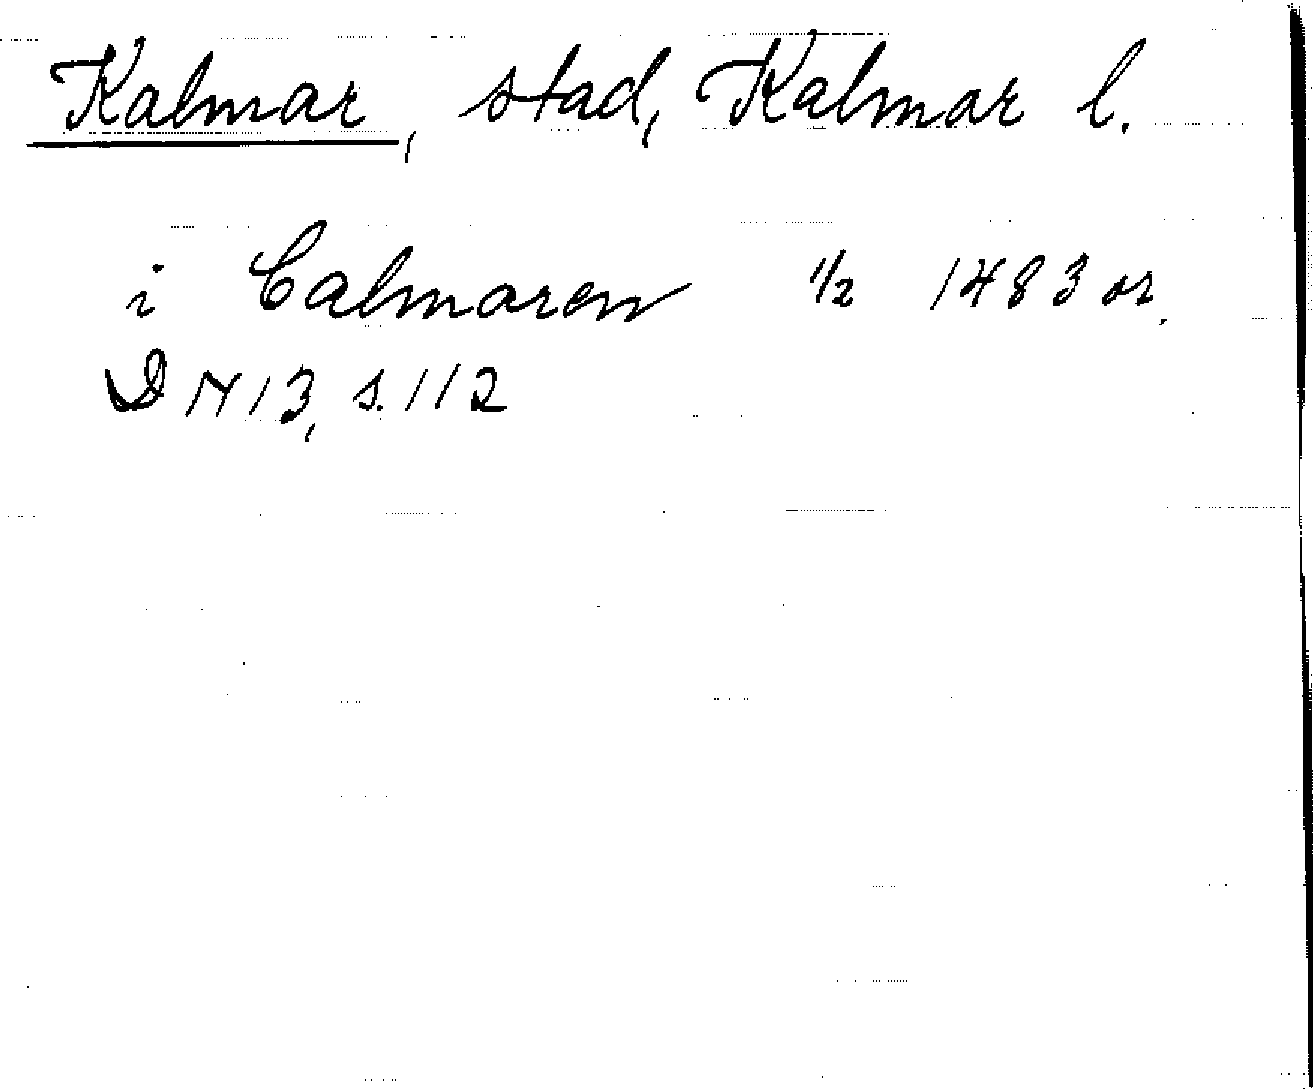 Kalmar, stad, Kalmar l.
i Calmaren 1/2 1483 or.
DN 13, s. 112